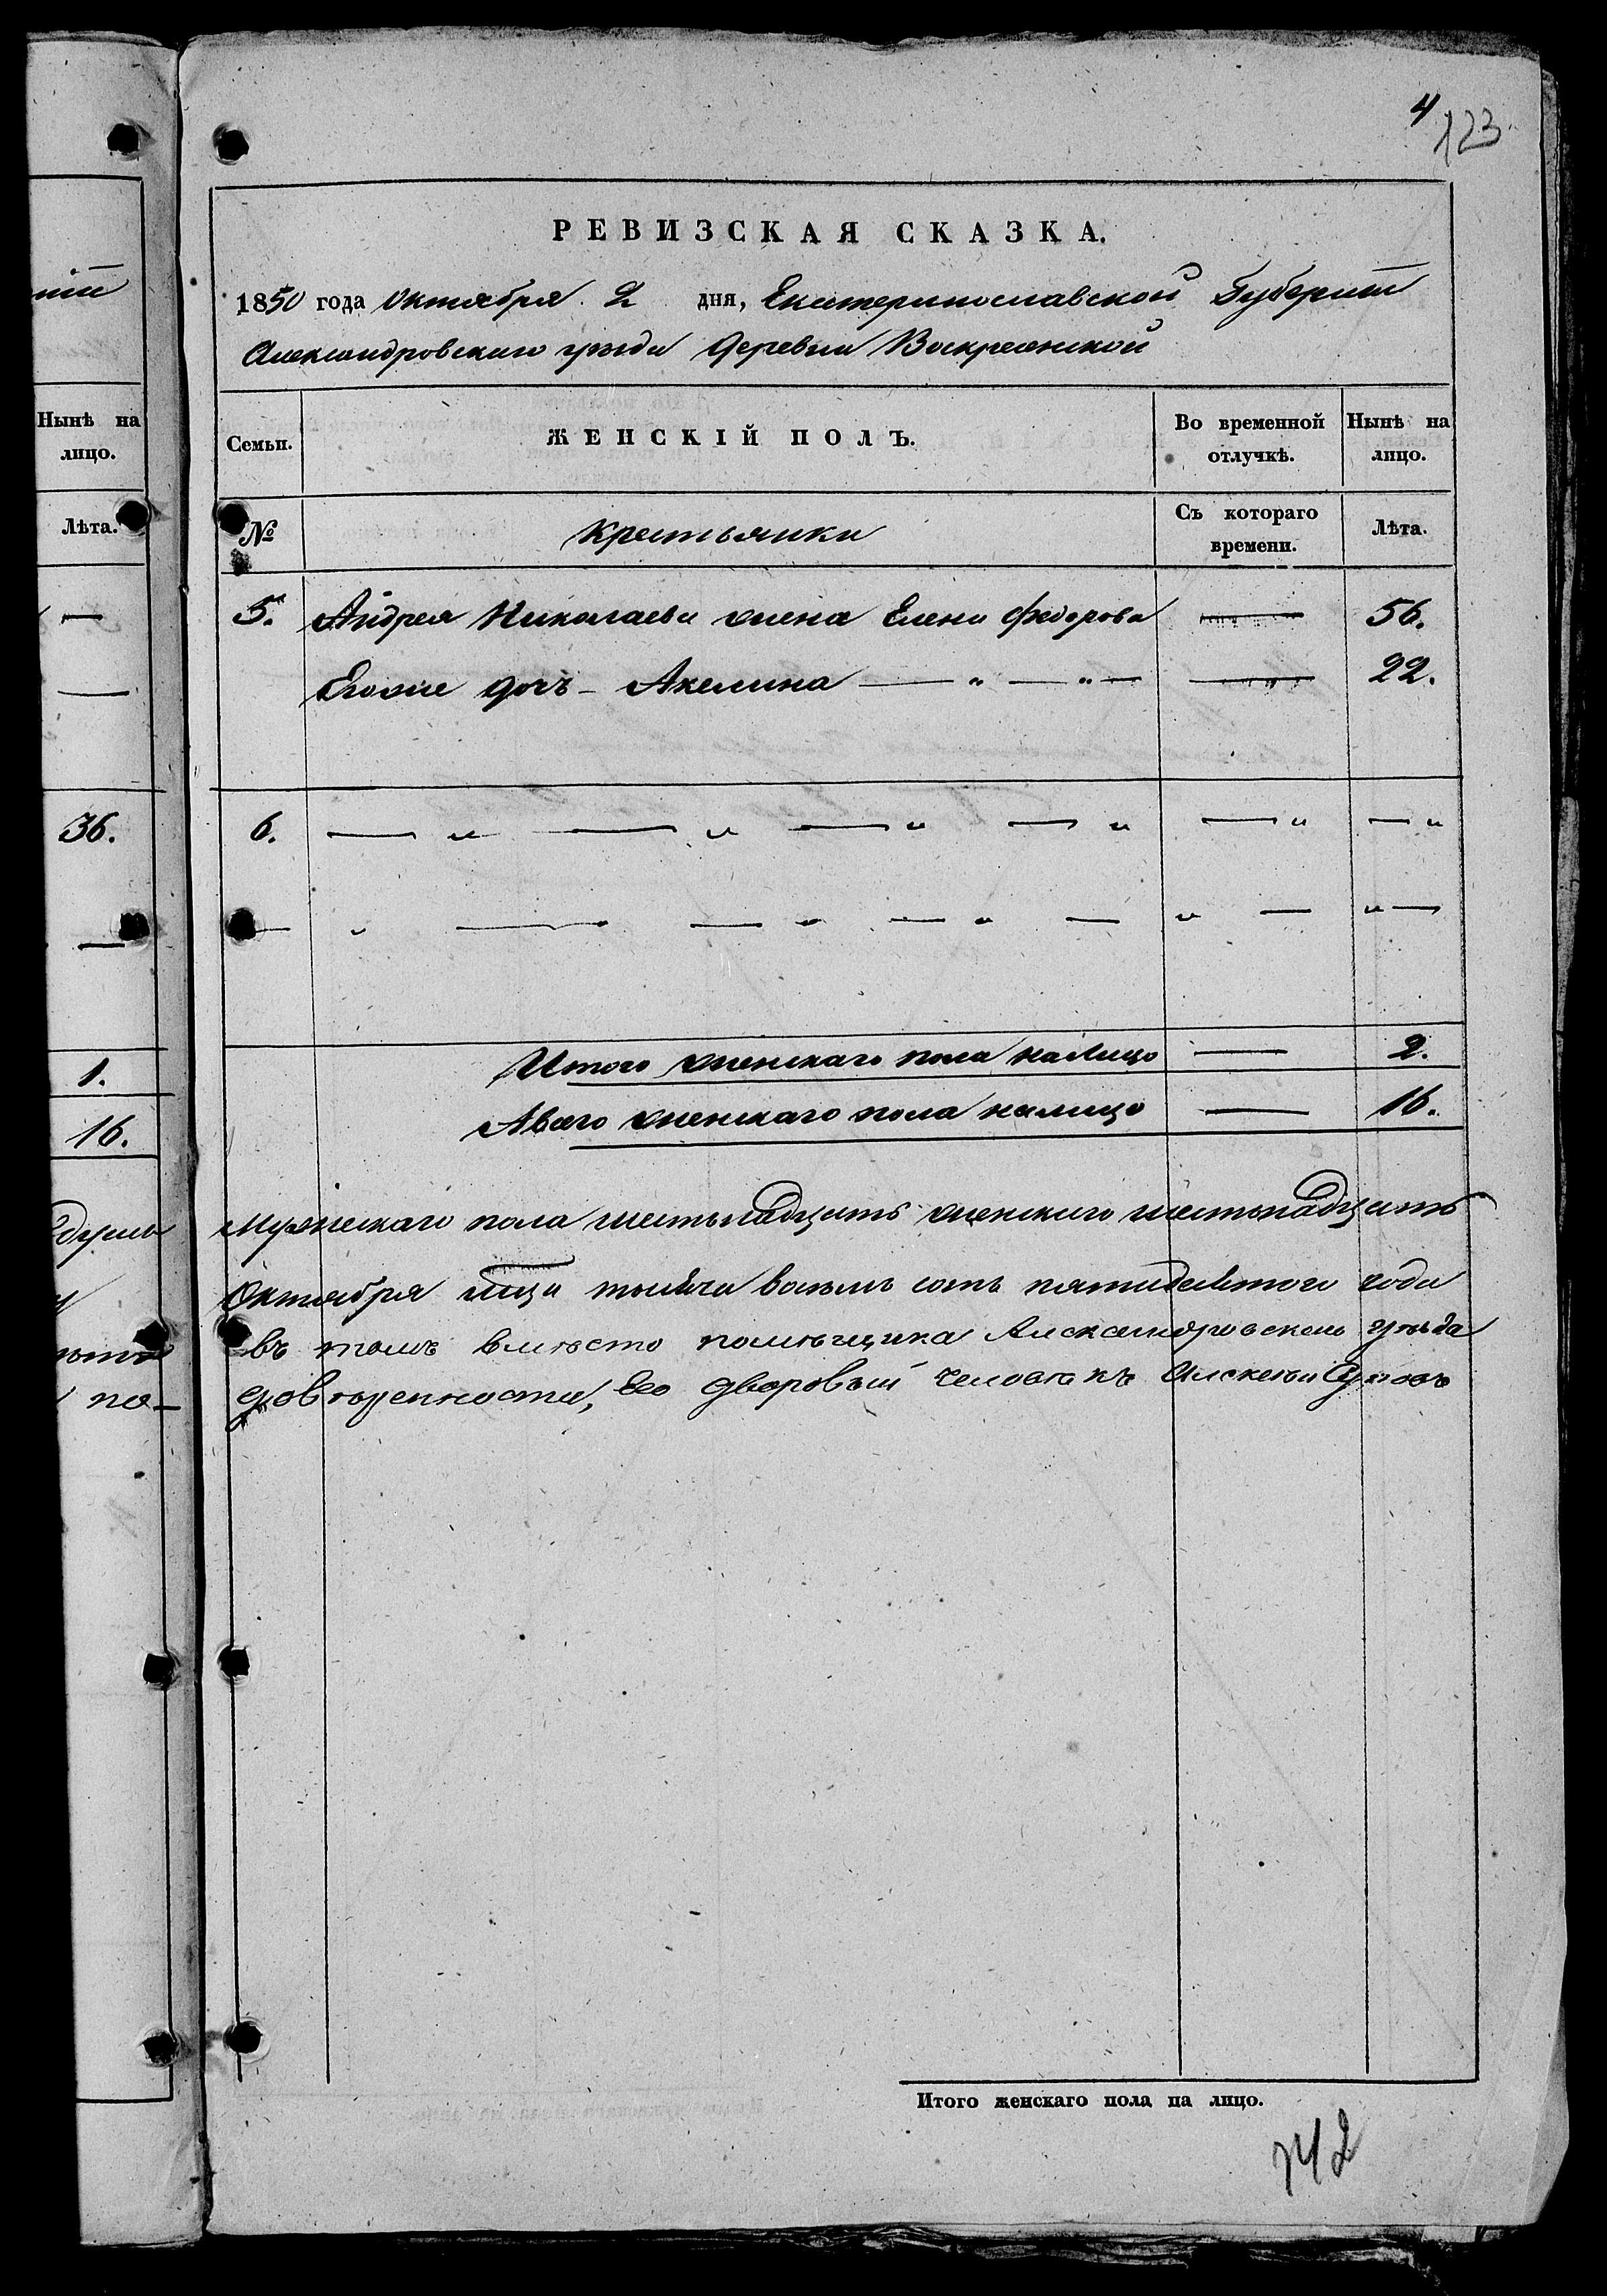 4
123
РЕВИЗСКАЯ СКАЗКА.
1850 года Октября 2 дня, Екатеринославской Губерніи
Александровскаго уѣзда Деревни Воскресенской
Нынѣ на лицо.
Лѣта.
36.
1.
16.
по-
Семьи. ЖЕНСКІЙ ПОЛЪ. Во временной отлучкѣ. Нынѣ на лицо.
№ Крестьянки Съ котораго времени. Лѣта.
5. Андрея Николаева жена Елена Федорова — 56.
Егоже дочь - Акелина — „ — „ — — „ — 22.
6. — „ — „ — „ — „ — „ — „
— „ — — „ — „ — „ — „ —
Итого женскаго пола налицо — 2.
Авсего женскаго пола налицо — 16.
Мужескаго пола шестьнадцать женскаго шестьнадцать
Октября мца тысяча восемь сотъ пятидесятого года
въ томъ вместо помѣщика Александровскаго уѣзда
довѣренности, Его дворовый человекъ Алексей
Итого женскаго пола на лицо.